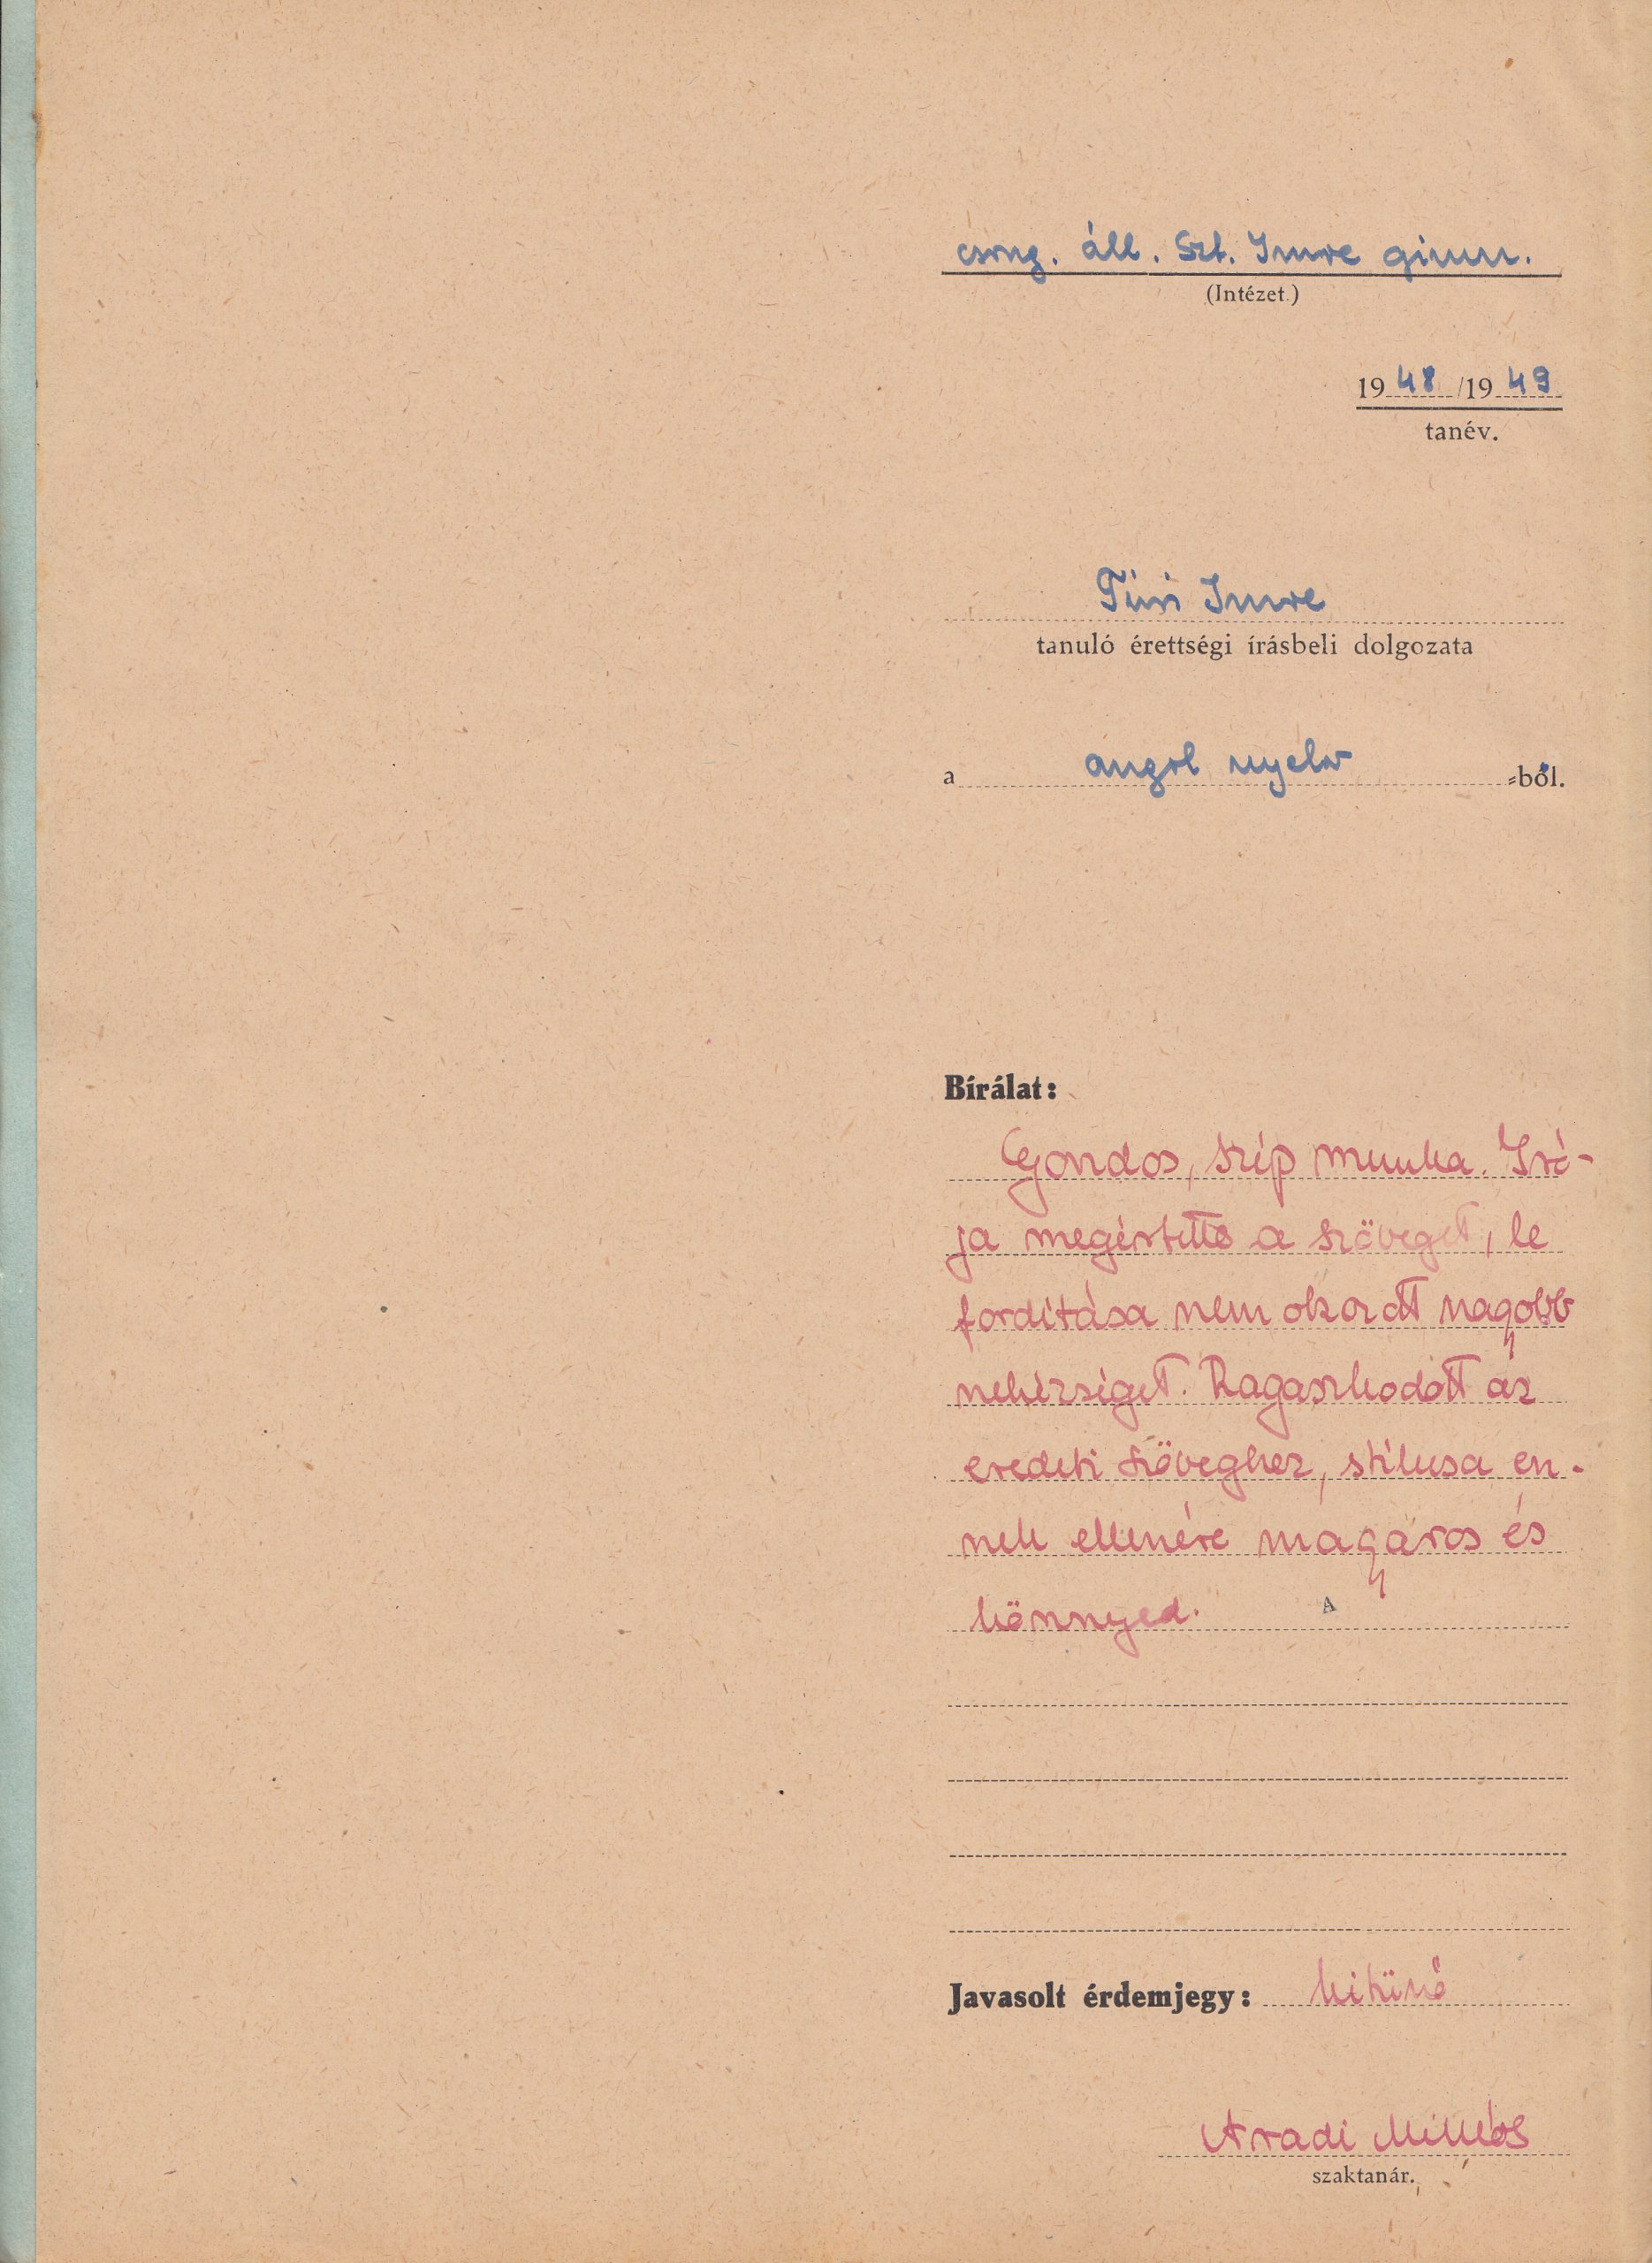 csong. áll. Szt. Imre gimn.
(Intézet.)
1948/1949
tanév.
Imre
tanuló érettségi írásbeli dolgozata
a angol nyelv =ből.
Bírálat:
Gondos, szép munka. Iró-
ja megértette a szöveget, le
fordítása nem okozott nagyobb
nehézséget. Ragaszkodott az
eredeti szöveghez, stílusa en-
nek ellenére magyaros és
könnyed.
Javasolt érdemjegy: kitünő
Aradi Miklós
szaktanár.